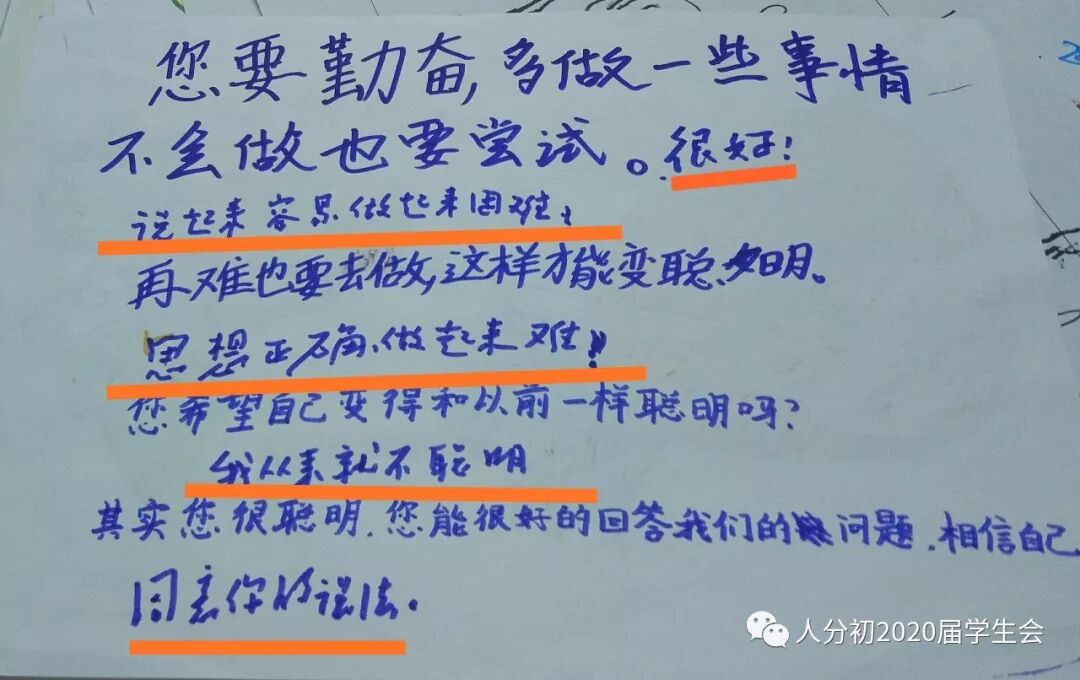 您要勤奋,多做一些事情
不会做也要尝试。很好!
说起来容易做起来困难,
再难也要去做,这样才能变聪明。
思想正确,做起来难!
您希望自己变得和以前一样聪明吗?
我从来就不聪明
其实您很聪明.您能很好的回答我们的问题.相信自己
同意你的说法.
人分初2020届学生会